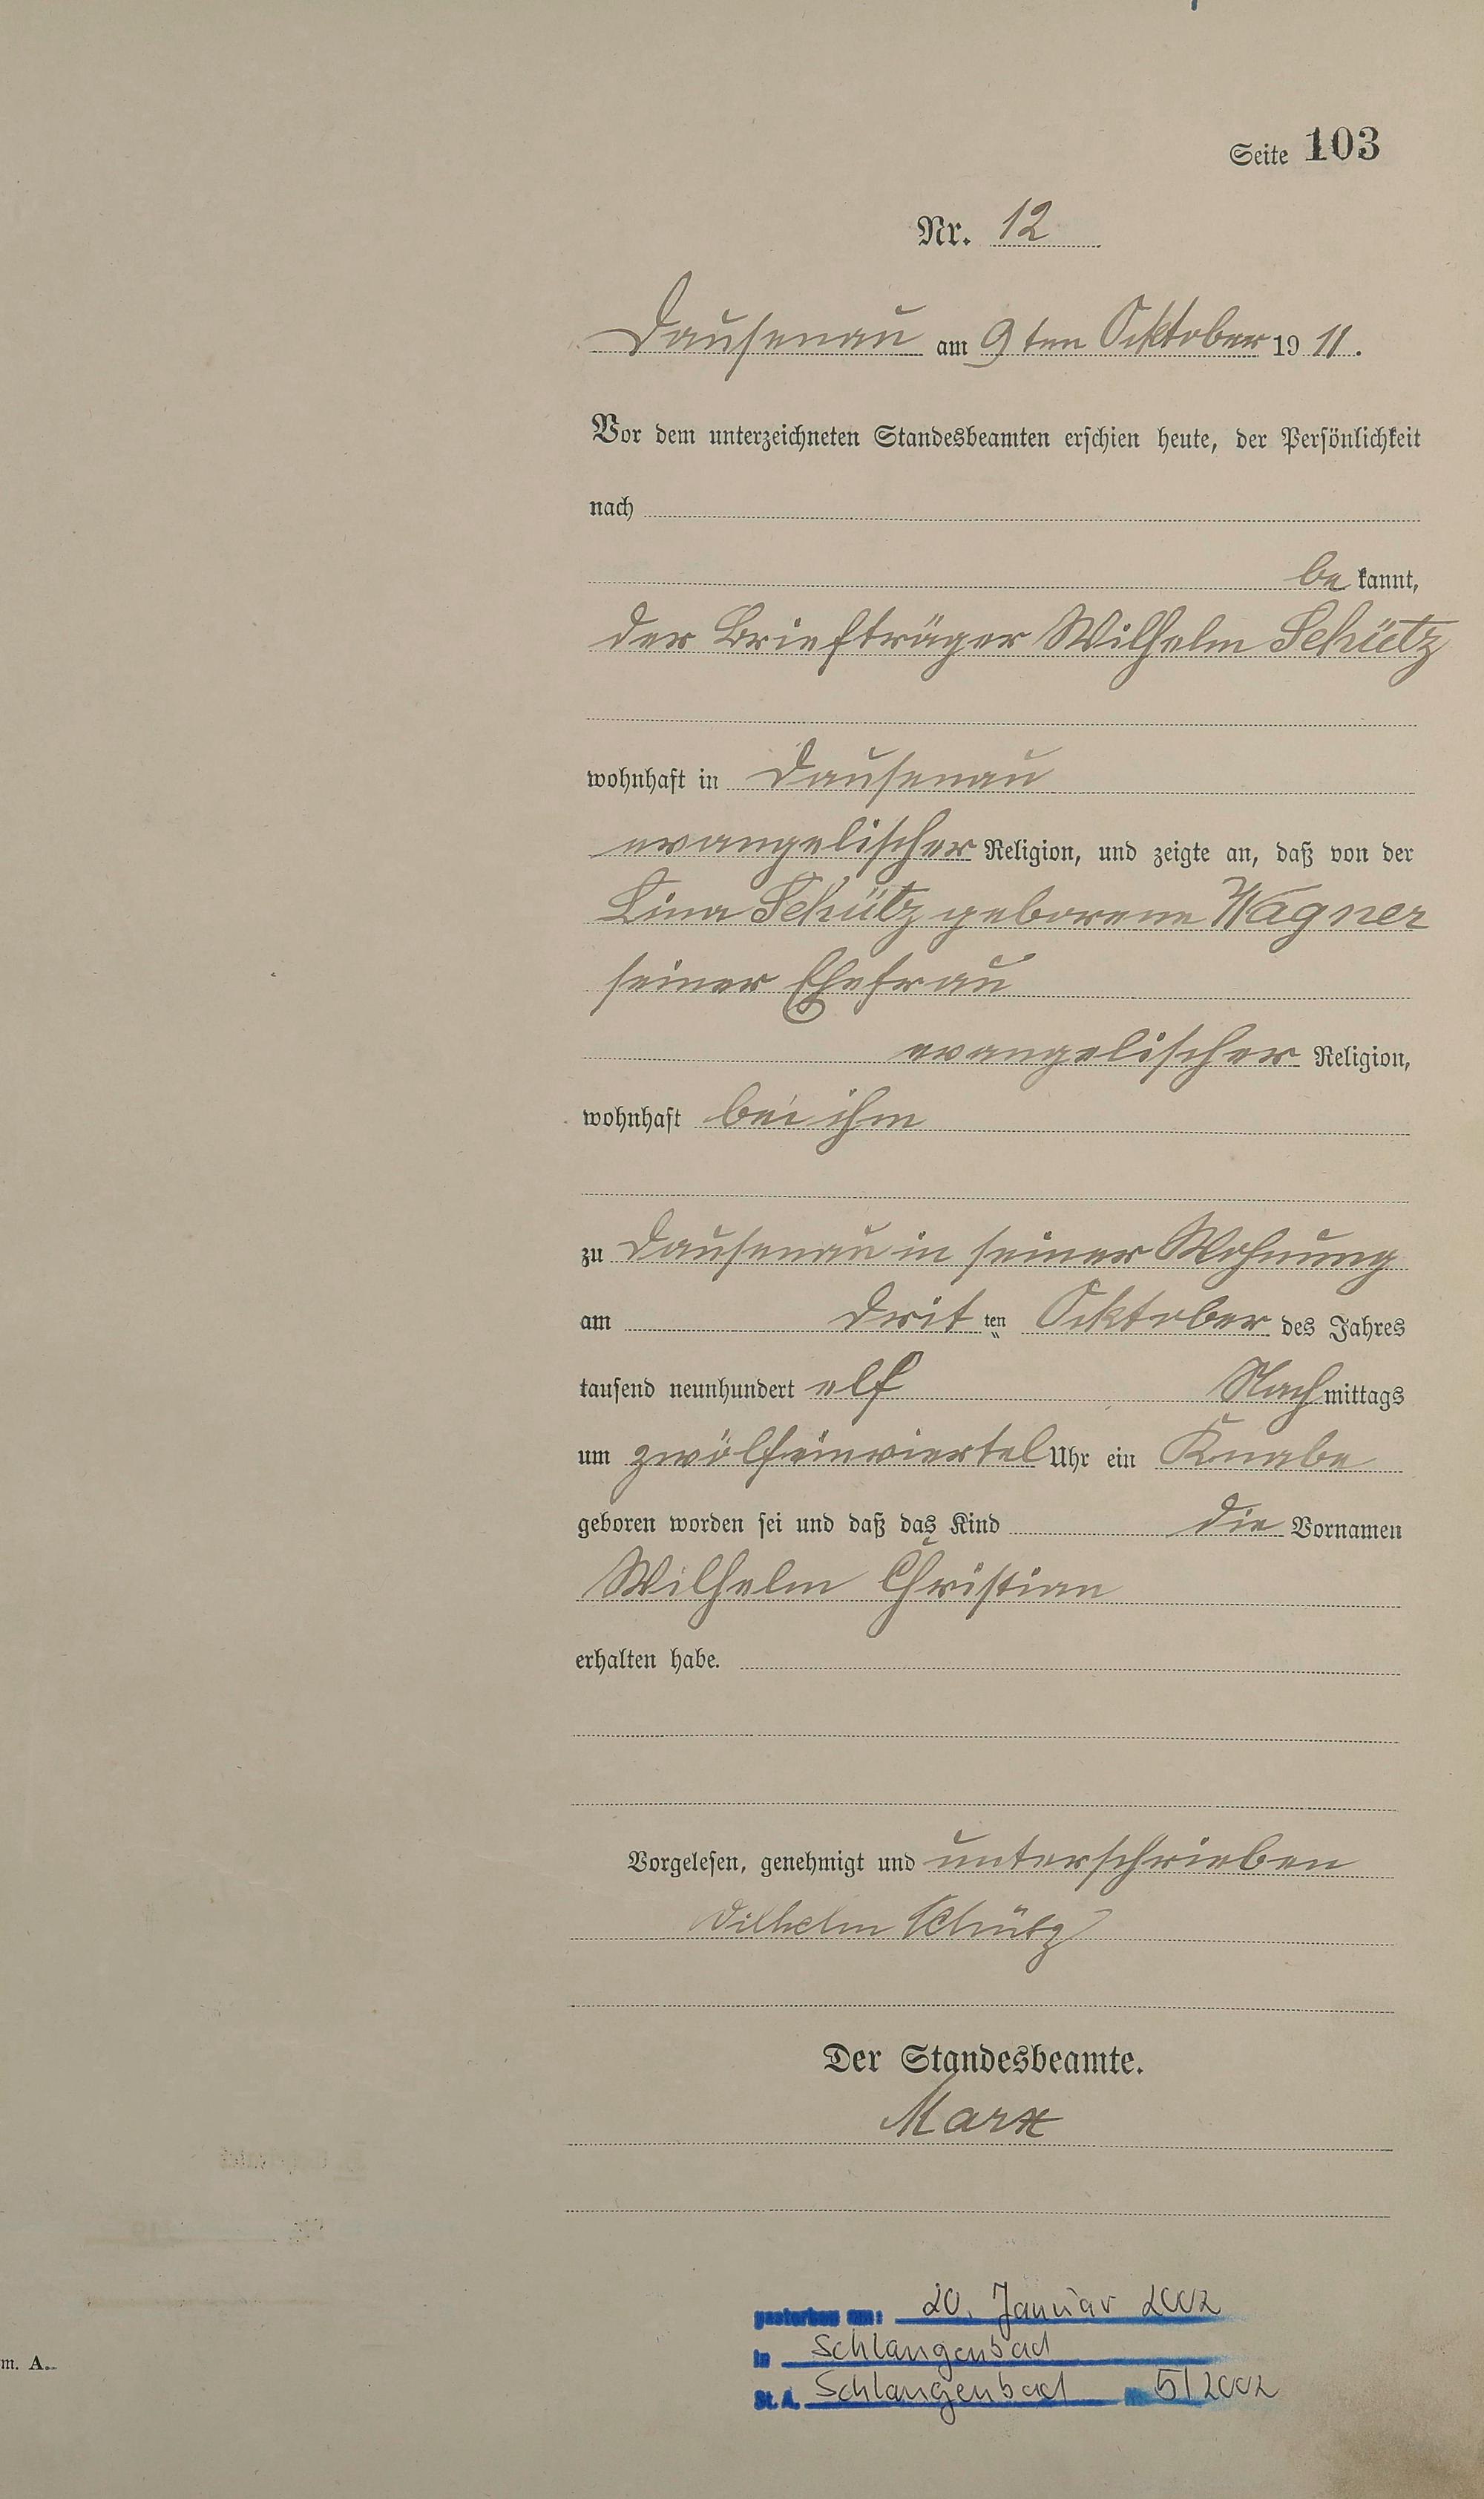 Seite 103
Nr. 12
Dausenau am 9ten Ocktober 19 11.
Vor dem unterzeichneten Standesbeamten erschien heute, der Persönlichkeit
nach
be kannt,
der Briefträger Wilhelm Schütz
wohnhaft in Dausenau
evangelischer Religion, und zeigte an, daß von der
Lina Schütz geborene Wagner
seiner Ehefrau
evangelischer Religion,
wohnhaft bei ihm
zu Dausenau in seiner Wohnung
am dritten Ocktober des Jahres
tausend neunhundert elf Nachmittags
um zwölfeinviertel Uhr ein Knabe
geboren worden sei und daß das Kind die Vornamen
Wilhelm Christian
erhalten habe.
Vorgelesen, genehmigt und unterschrieben
Wilhelm Schütz
Der Standesbeamte.
Marx
gestorben am: 20. Januar 2002
in Schlangenbad
m. A.
St. A. Schlangenbad Nr. 5/2002